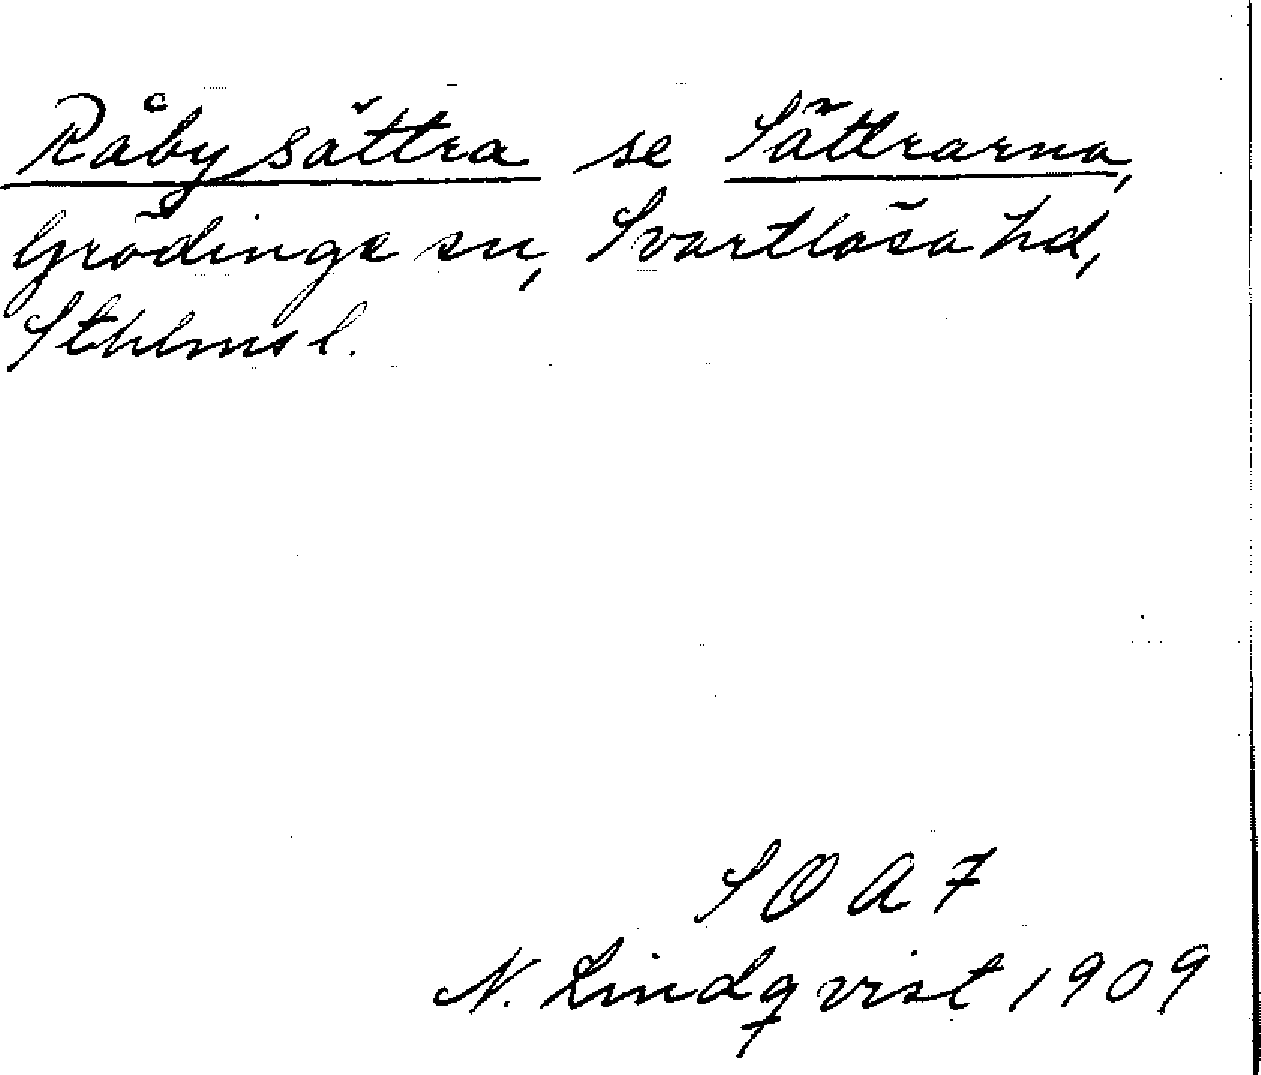 Råby sättra se Sättrarna,
Grödinge sn, Svartlösa hd,
Sthlms l.
SOA 7
N. Lindqvist 1909